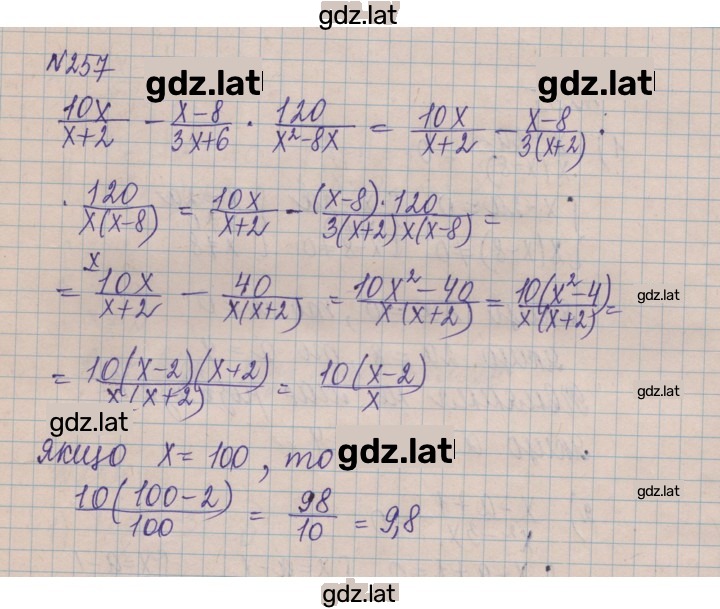 gdz.lat
№257
gdz.lat gdz.lat
10x/(x+2) - (x-8)/(3x+6) · 120/(x²-8x) = 10x/(x+2) - (x-8)/(3(x+2)) ·
· 120/(x(x-8)) = 10x/(x+2) - ((x-8)·120)/(3(x+2)x(x-8)) =
= ˣ 10x/(x+2) - 40/(x(x+2)) = (10x²-40)/(x(x+2)) = 10(x²-4)/(x(x+2)) =
gdz.lat
= 10(x-2)(x+2)/(x(x+2)) = 10(x-2)/x
gdz.lat
gdz.lat
якщо x=100, то
gdz.lat
10(100-2)/100 = 98/10 = 9,8
gdz.lat
gdz.lat